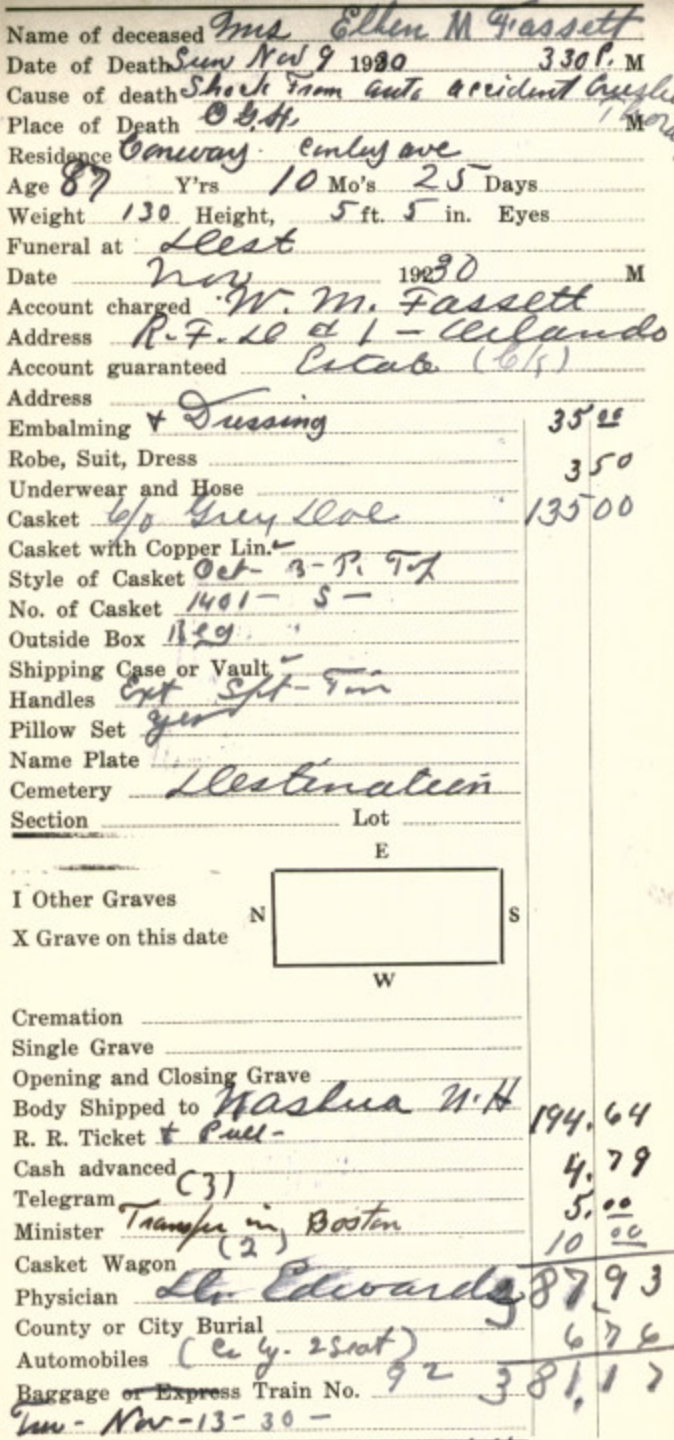 Name of deceased Mrs Ellen M Fassett
Date of Death Sun Nov 9 1930 3 30 P. M
Cause of death Shock From auto accident
Place of Death O.G.H. M
Residence Conway
Age 87 Y'rs 10 Mo's 25 Days
Weight 130 Height, 5 ft. 5 in. Eyes
Funeral at Dest
Date Nov 1930 M
Account charged W. M. Fassett
Address R.F.D # 1 - Orlando
Account guaranteed Estate
Address
Embalming + Dressing 35 00
Robe, Suit, Dress 3 50
Underwear and Hose
Casket Grey Doe 135 00
Casket with Copper Lin.
Style of Casket Oct- 3-P. Top
No. of Casket 1401 - S -
Outside Box Reg
Shipping Case or Vault
Handles Ext
Pillow Set yes
Name Plate
Cemetery Destination
Section Lot
E
I Other Graves
N S
X Grave on this date
W
Cremation
Single Grave
Opening and Closing Grave
Body Shipped to Nashua N.H 194.64
R. R. Ticket + Pull-
Cash advanced 4.79
Telegram (3) 5.00
Minister Transfer in Boston 10 00
Casket Wagon (2)
Physician Dr. Edwards 387.93
County or City Burial 6 76
Automobiles
Baggage or Express Train No. 92 381.17
Nov-13-30-